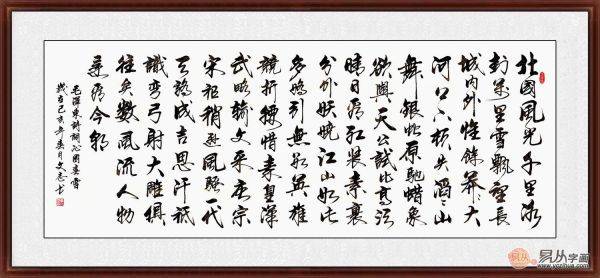 北國風光千里冰
封萬里雪飄望長
城內外惟餘莽〻大
河上下頓失滔〻山
舞銀蛇原馳蠟象
欲與天公試比高須
晴日看紅裝素裹
分外妖嬈江山如此
多嬌引無數英雄
競折腰惜秦皇漢
武略輸文采唐宗
宋祖稍遜風騷一代
天驕成吉思汗祇
識彎弓射大雕俱
往矣數風流人物
還看今朝
毛澤東詩詞沁園春雪
歲在己亥年 月文志书
易从字画
www.yczihua.com